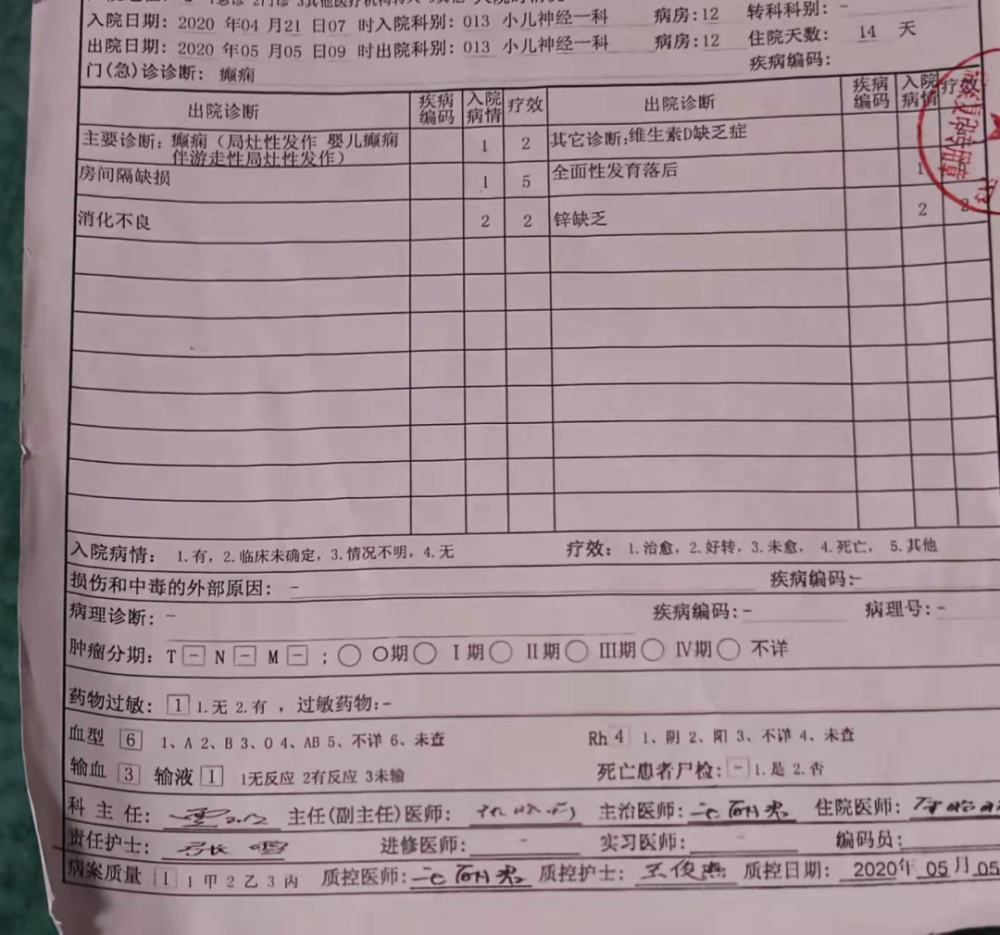 入院日期: 2020 年04 月21 日07 时入院科别: 013 小儿神经一科 病房:12 转科科别: -
出院日期: 2020 年05 月05 日09 时出院科别: 013 小儿神经一科 病房:12 住院天数: 14 天
门(急)诊诊断: 癫痫 疾病编码:
出院诊断 疾病编码 入院病情 疗效 出院诊断 疾病编码 入院病情 疗效
主要诊断: 癫痫（局灶性发作 婴儿癫痫伴游走性局灶性发作） 1 2 其它诊断:维生素D缺乏症
房间隔缺损 1 5 全面性发育落后 1
消化不良 2 2 锌缺乏 2 2
入院病情: 1.有, 2.临床未确定, 3.情况不明, 4.无 疗效: 1.治愈, 2.好转, 3.未愈, 4.死亡, 5.其他
损伤和中毒的外部原因: - 疾病编码:-
病理诊断: - 疾病编码:- 病理号:-
肿瘤分期: T - N - M - ; ○ 0期 ○ I 期 ○ II 期 ○ III期 ○ IV期 ○ 不详
药物过敏: 1 1.无 2.有 , 过敏药物:-
血型 6 1、A 2、B 3、O 4、AB 5、不详 6、未查 Rh 4 1、阴 2、阳 3、不详 4、未查
输血 3 输液 1 1无反应 2有反应 3未输 死亡患者尸检: - 1.是 2.否
科 主 任: 主任(副主任)医师: 主治医师: 住院医师:
责任护士: 张 进修医师: - 实习医师: - 编码员:
病案质量 1 1 甲 2 乙 3 丙 质控医师: 质控护士: 王俊 质控日期: 2020年 05 月 05